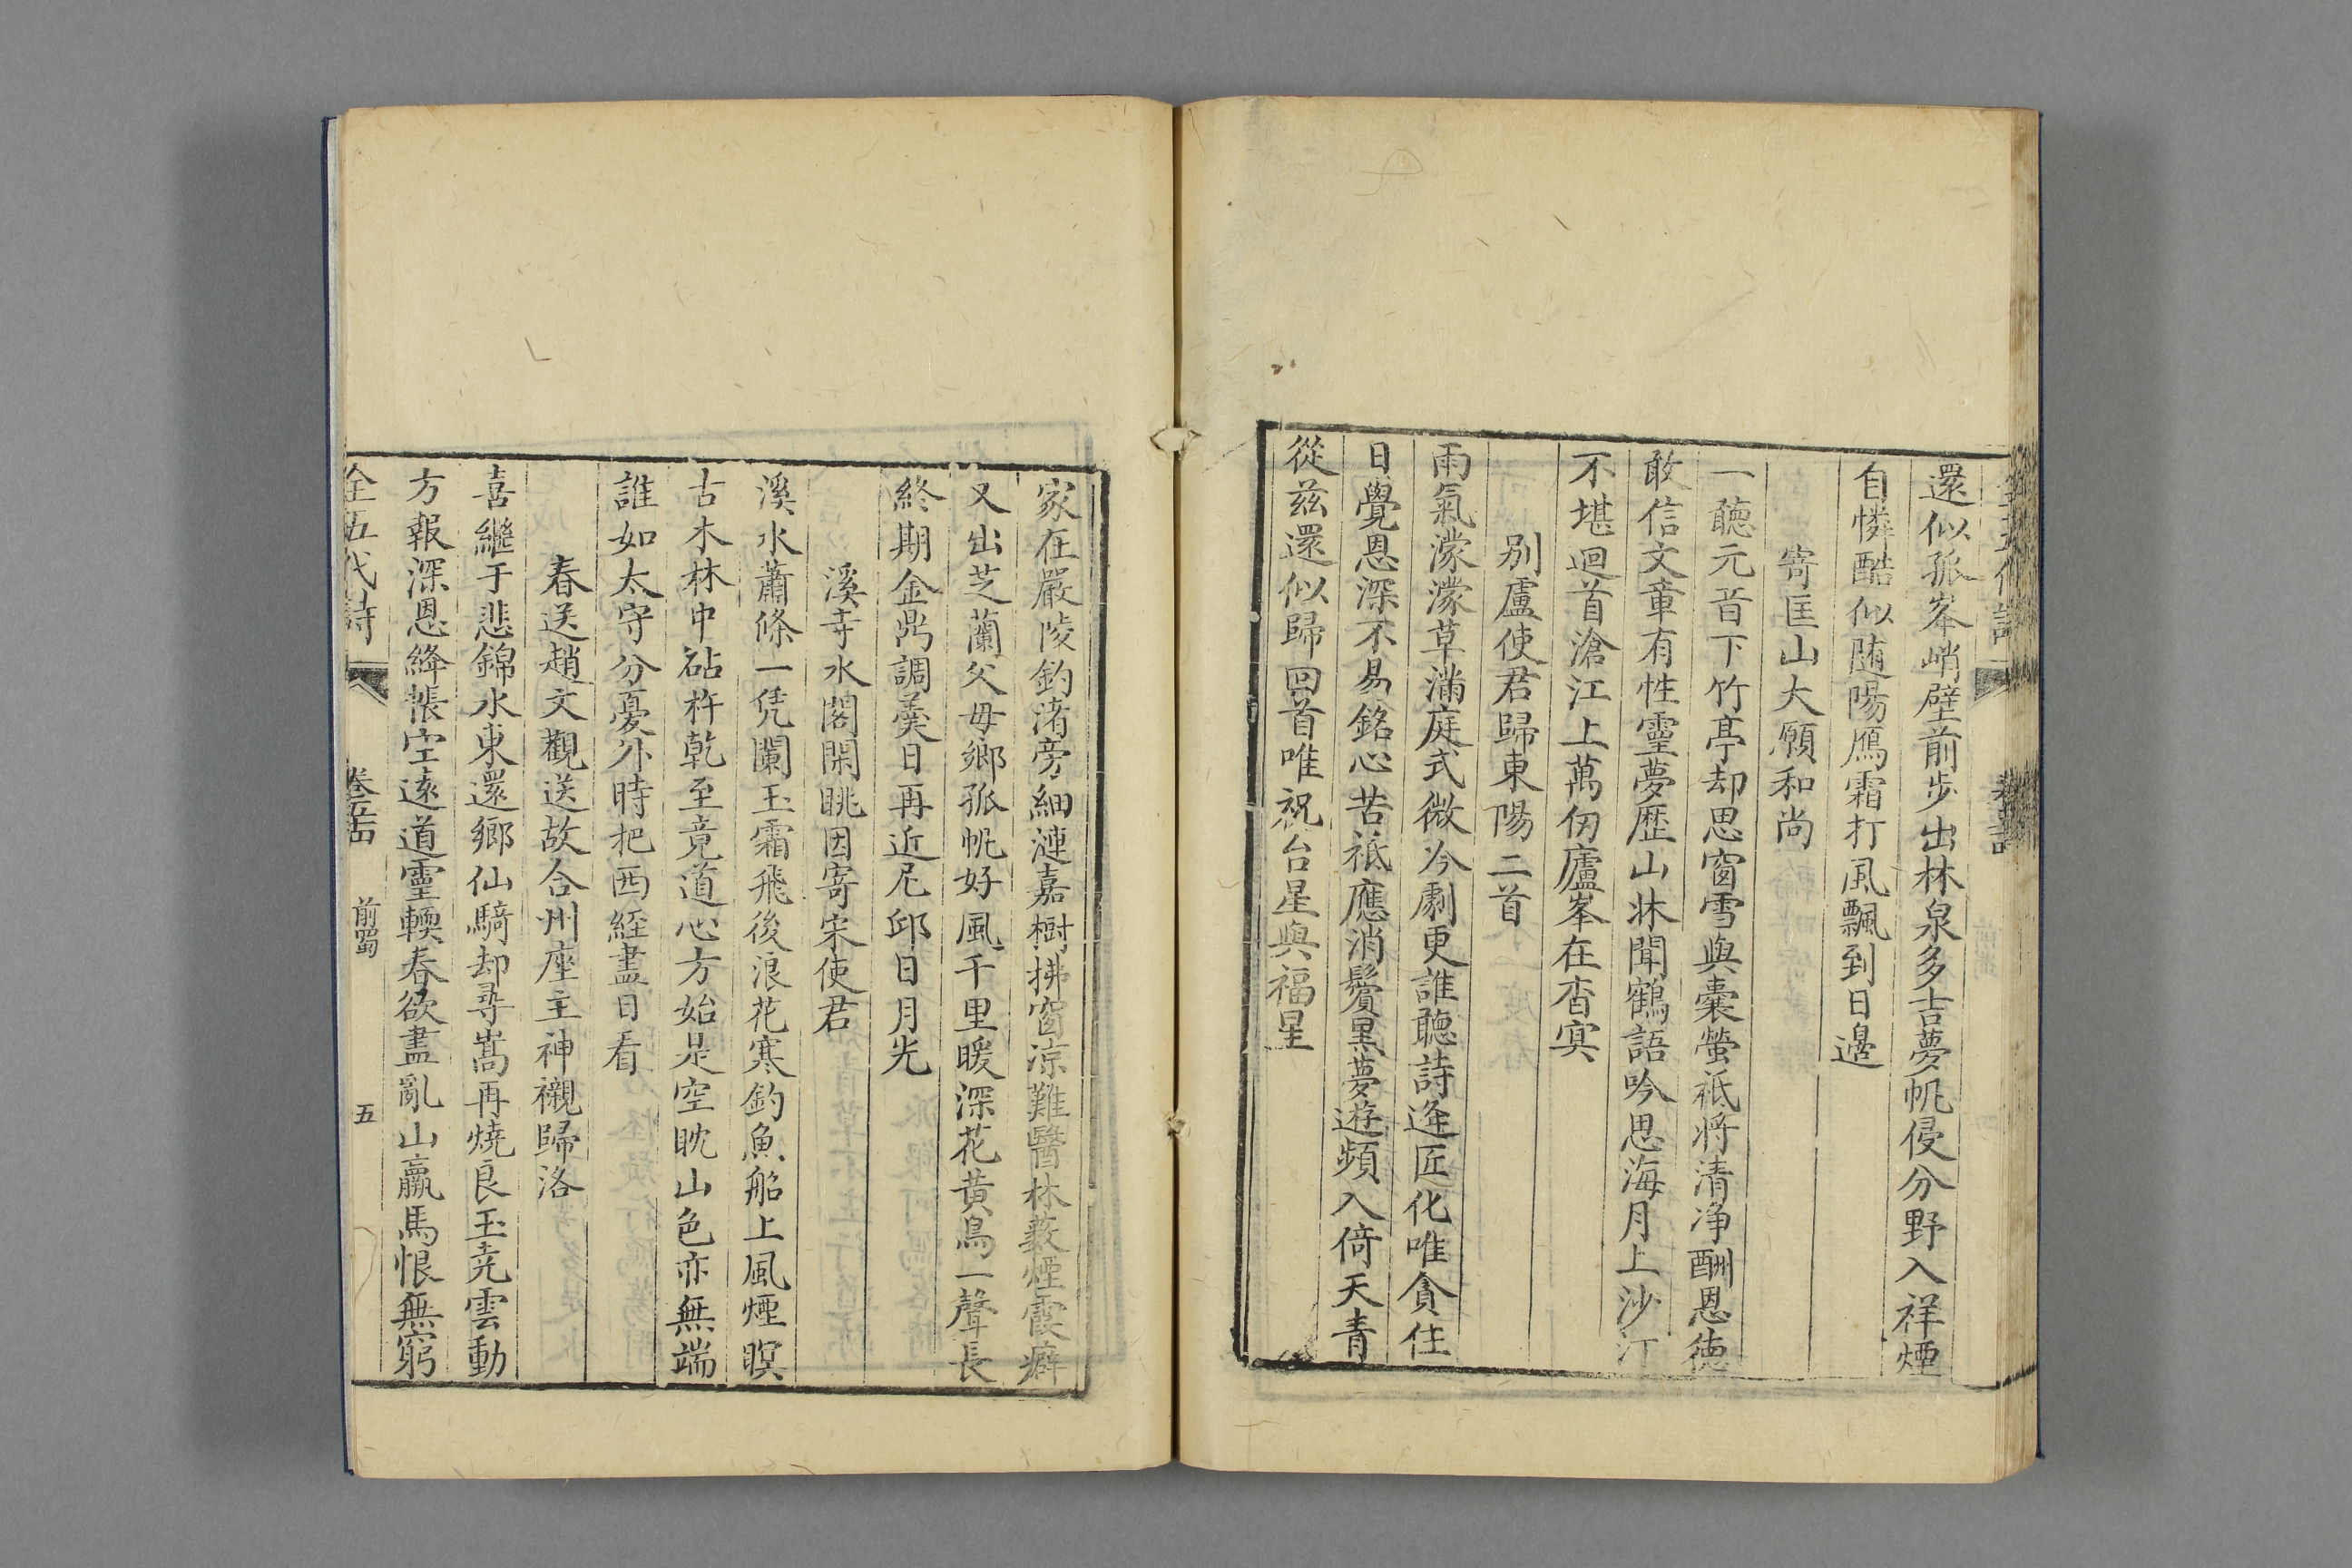 還似孤峯峭壁前步出林泉多吉夢帆侵分野入祥煙
自憐酷似随陽鴈霜打風飄到日邊
寄匡山大願和尚
一聽元音下竹亭却思窗雪與囊螢祗將清净酬恩德
敢信文章有性靈夢歷山牀聞鶴語吟思海月上沙汀
不堪迴首滄江上萬仞廬峯在杳冥
别盧使君歸東陽二首
雨氣濛濛草滿庭式微吟劇更誰聽詩逢匠化唯貪住
日覺恩深不易銘心苦祗應消鬢黑夢遊頻入倚天青
從兹還似歸回首唯祝台星與福星
家在嚴陵釣渚旁細漣嘉樹拂窗凉難醫林藪煙霞癖
又出芝蘭父母鄉孤帆好風千里暖深花黄鳥一聲長
終期金鼎調羹日再近尼邱日月光
溪寺水閣閑眺因寄宋使君
溪水蕭條一凭闌玉霜飛後浪花寒釣魚船上風煙暝
古木林中砧杵乾至竟道心方始是空眈山色亦無端
誰如太守分憂外時把西經盡日看
春送趙文觀送故合州座主神櫬歸洛
喜繼于悲錦水東還鄉仙騎却尋嵩再燒良玉尭雲動
方報深恩絳帳空遠道靈輭春欲盡亂山羸馬恨無窮
全五代詩
前蜀
五